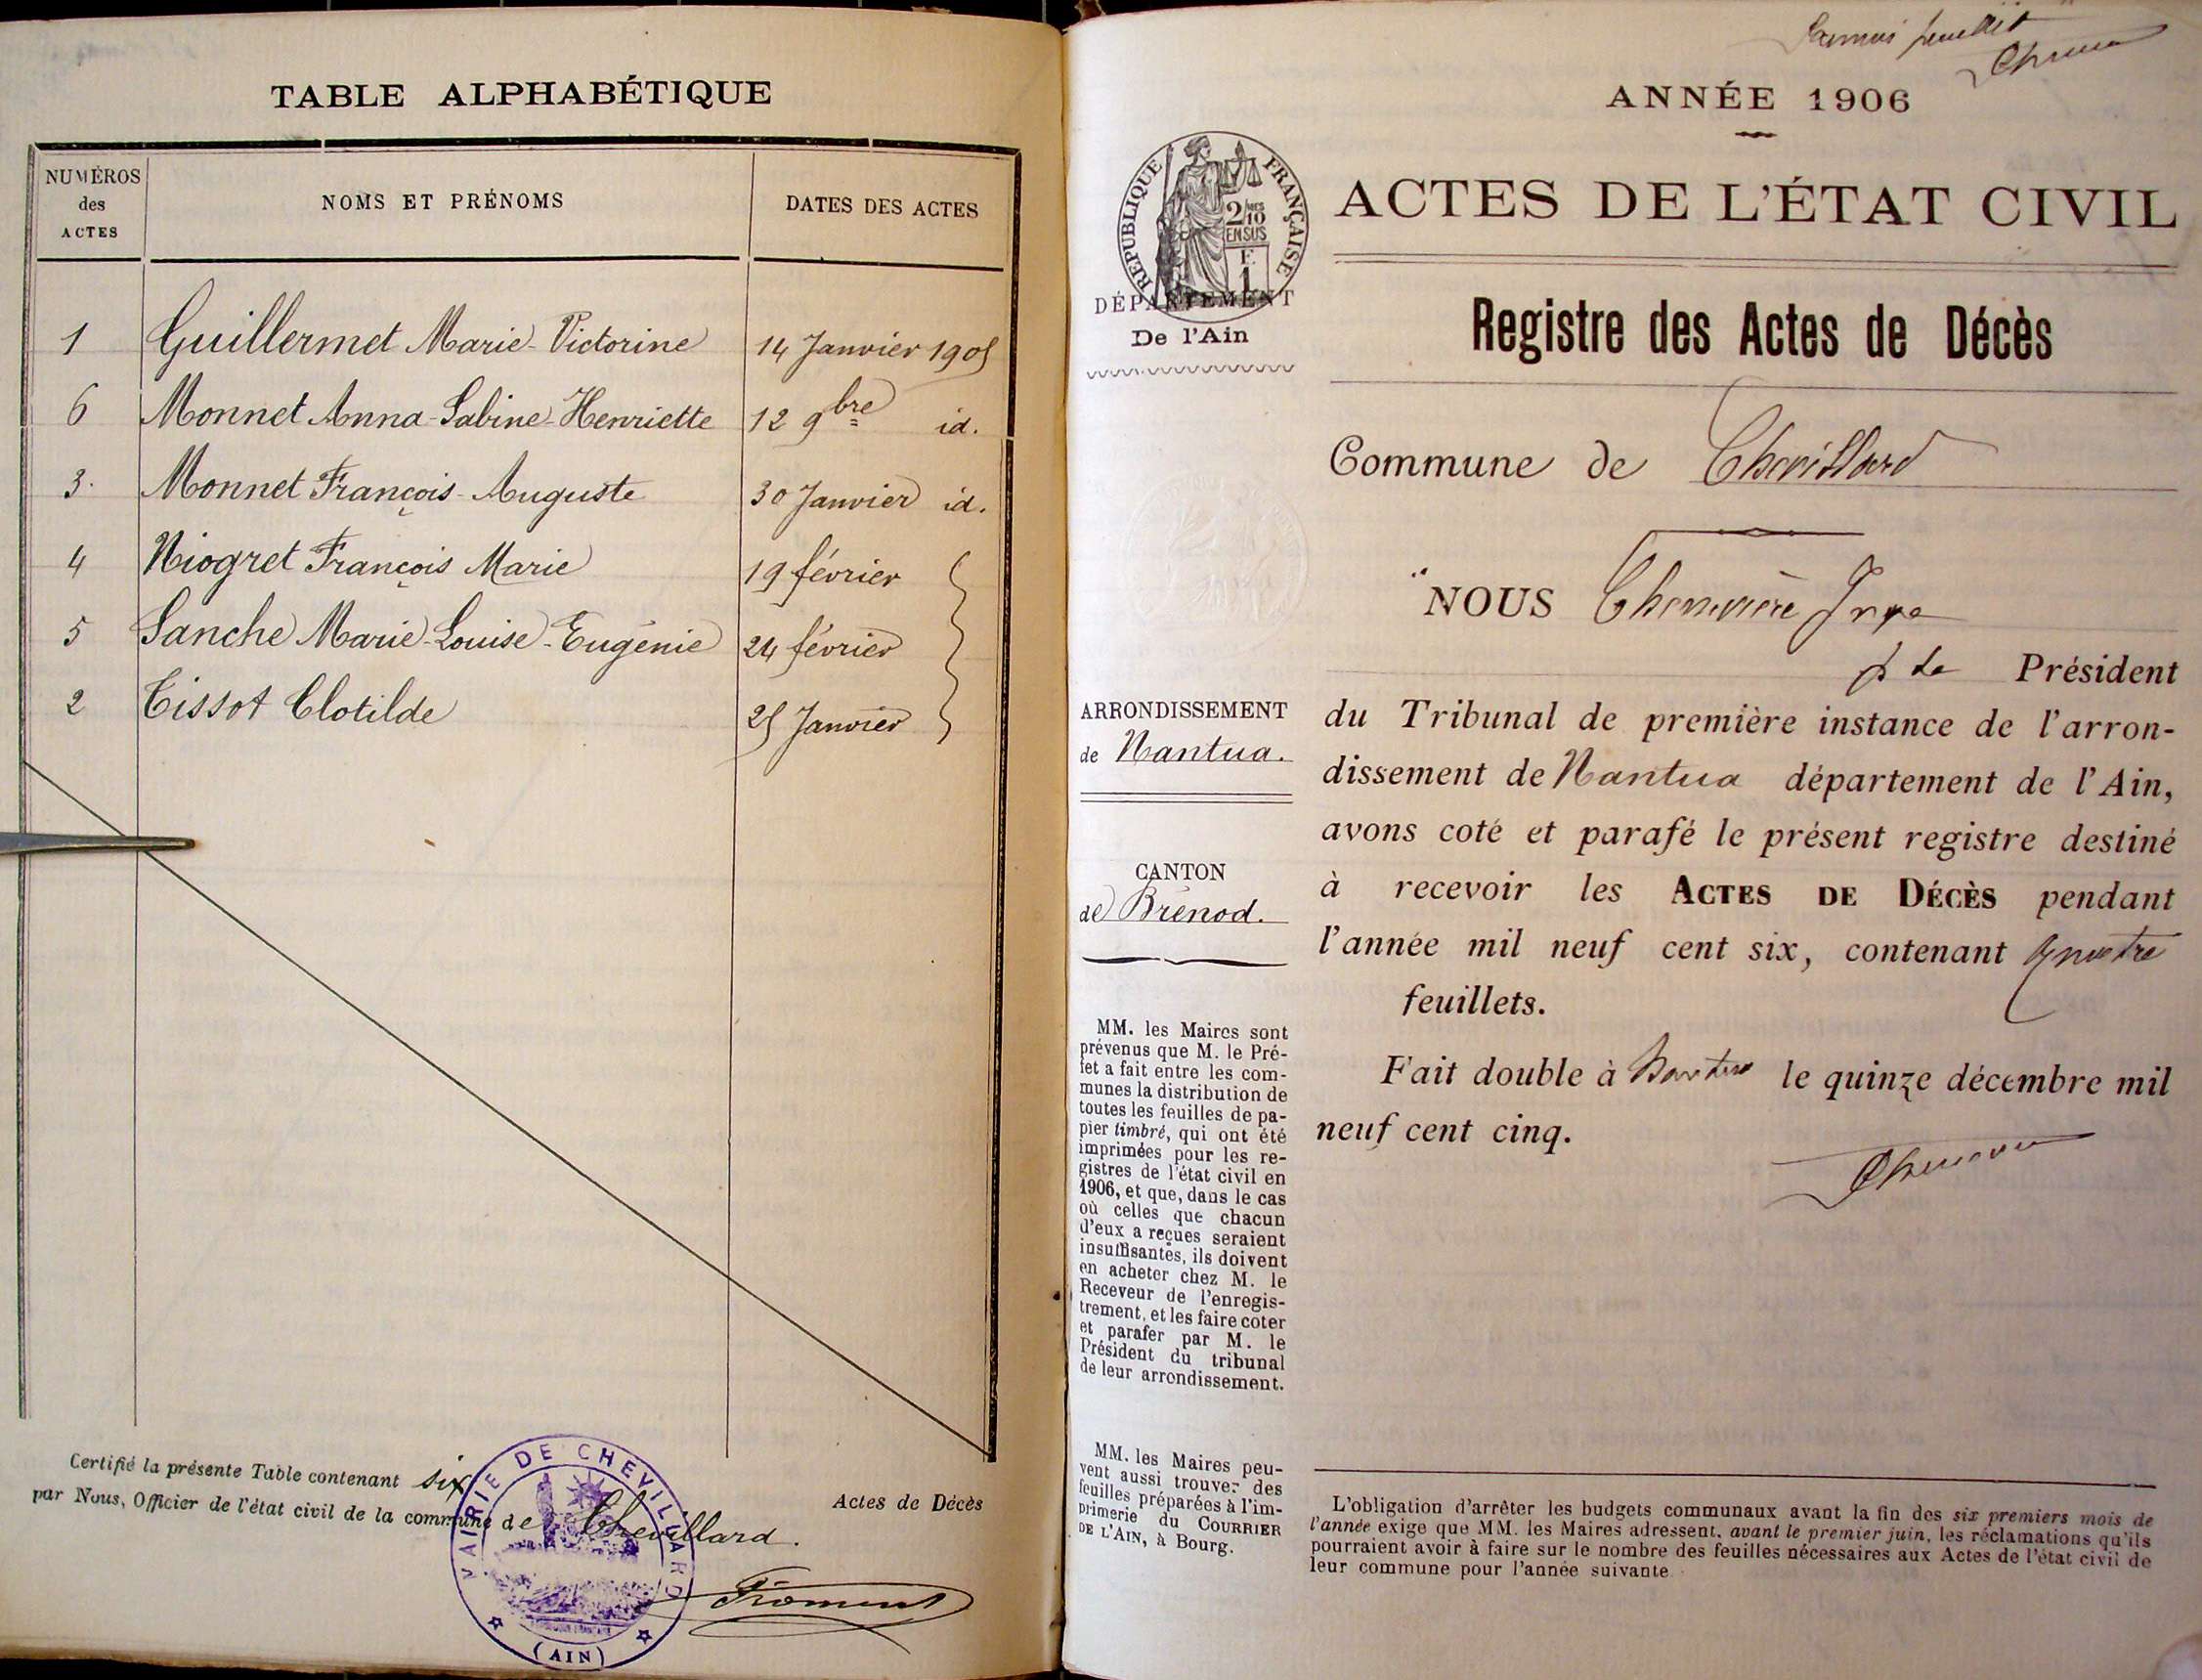 TABLE ALPHABÉTIQUE
NUMÉROS des ACTES
NOMS ET PRÉNOMS
DATES DES ACTES
1 Guillermet Marie-Victorine 14 Janvier 1905
6 Monnet Anna-Sabine-Henriette 12 9bre id.
3. Monnet François-Auguste 30 Janvier id.
4 Niogret François Marie 19 février
5 Sanche Marie-Louise-Eugénie 24 février
2 Tissot Clotilde 25 Janvier
Certifié la présente Table contenant six Actes de Décès
par Nous, Officier de l'état civil de la commune de Chevillard.
MAIRIE DE CHEVILLARD
(AIN)
Froment
Premier feuillet
ANNÉE 1906
RÉPUBLIQUE FRANÇAISE
2/10
EN SUS
F.
1
DÉPARTEMENT
De l'Ain
ACTES DE L'ÉTAT CIVIL
Registre des Actes de Décès
Commune de Chevillard
NOUS Chenevière Juge
Président
du Tribunal de première instance de l'arron-
dissement de Nantua département de l'Ain,
avons coté et parafé le présent registre destiné
à recevoir les ACTES DE DÉCÈS pendant
l'année mil neuf cent six, contenant quatre
feuillets.
Fait double à Nantua le quinze décembre mil
neuf cent cinq.
ARRONDISSEMENT
de Nantua.
CANTON
de Brénod.
MM. les Maires sont
prévenus que M. le Pré-
fet a fait entre les com-
munes la distribution de
toutes les feuilles de pa-
pier timbré, qui ont été
imprimées pour les re-
gistres de l'état civil en
1906, et que, dans le cas
où celles que chacun
d'eux a reçues seraient
insuffisantes, ils doivent
en acheter chez M. le
Receveur de l'enregis-
trement, et les faire coter
et parafer par M. le
Président du tribunal
de leur arrondissement.
MM. les Maires peu-
vent aussi trouver des
feuilles préparées à l'im-
primerie du COURRIER
DE L'AIN, à Bourg.
L'obligation d'arrêter les budgets communaux avant la fin des six premiers mois de
l'année exige que MM. les Maires adressent, avant le premier juin, les réclamations qu'ils
pourraient avoir à faire sur le nombre des feuilles nécessaires aux Actes de l'état civil de
leur commune pour l'année suivante